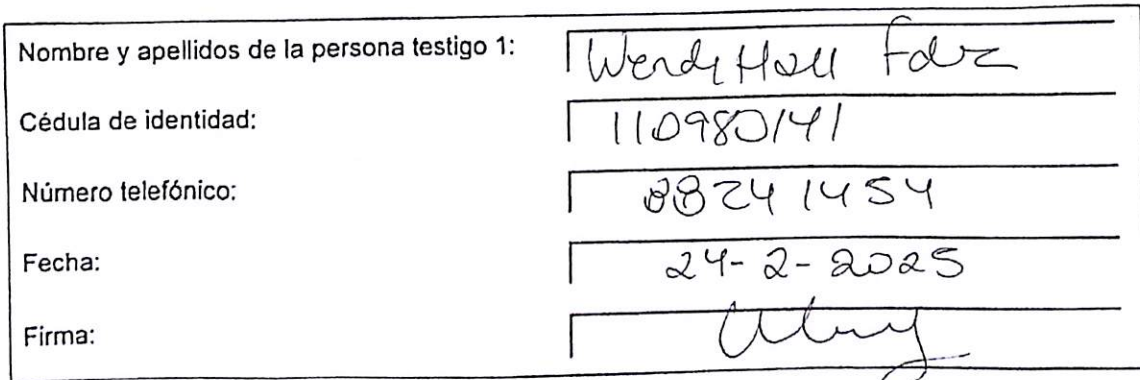 Nombre y apellidos de la persona testigo 1: Wendy Hall Fdz
Cédula de identidad: 110980141
Número telefónico: 88241454
Fecha: 24-2-2025
Firma: